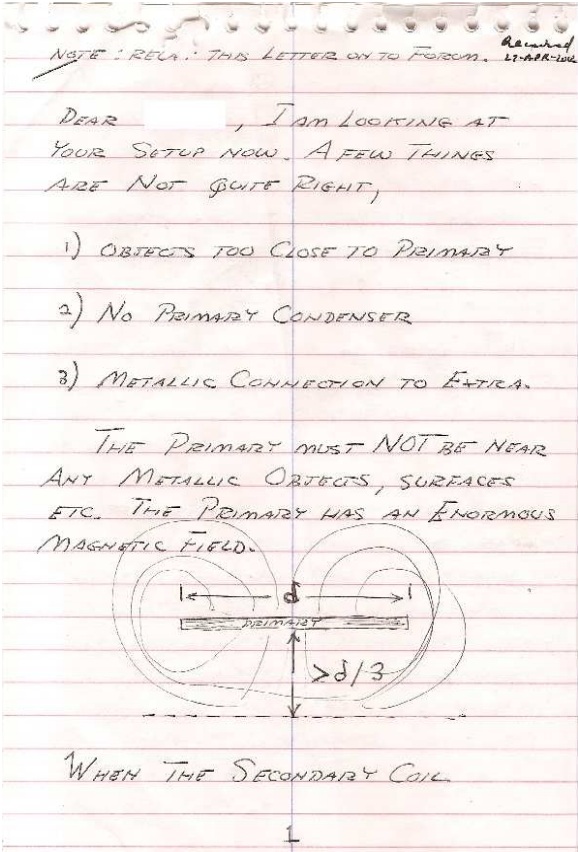 NOTE : RELA: THIS LETTER ON TO FORUM.
Received
27-APR-2012
DEAR , I AM LOOKING AT
YOUR SETUP NOW. A FEW THINGS
ARE NOT QUITE RIGHT,
1) OBJECTS TOO CLOSE TO PRIMARY
2) NO PRIMARY CONDENSER
3) METALLIC CONNECTION TO EXTRA.
THE PRIMARY MUST NOT BE NEAR
ANY METALLIC OBJECTS, SURFACES
ETC. THE PRIMARY HAS AN ENORMOUS
MAGNETIC FIELD.
d
PRIMARY
>d/3
WHEN THE SECONDARY COIL
1